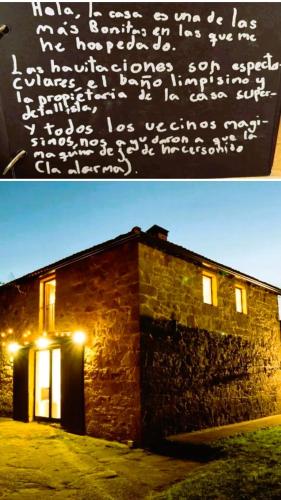 Hola, la casa es una de las
más Bonitas en las que me
he hospedado.
Las havitaciones son espect-
culares, el baño limpisino y
la propietaria de la casa super-
detallista,
Y todos los vecinos magi-
sinos, nos ayudaron a que la
maquina dejede hacersonido
(la alarma).